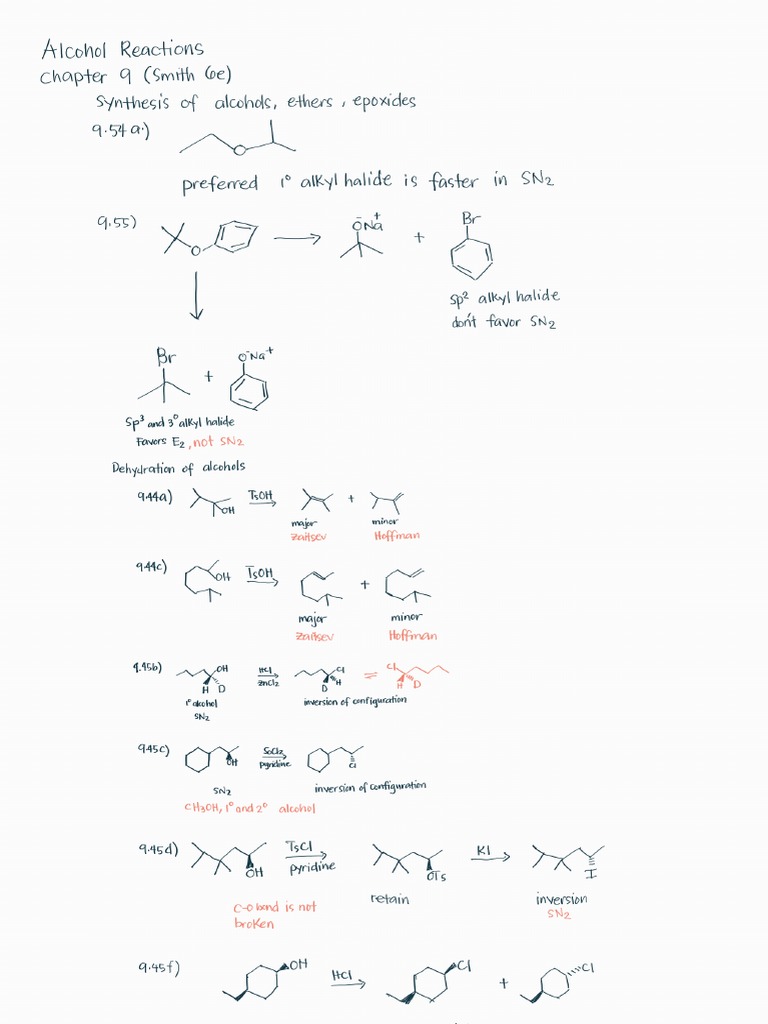 Alcohol Reactions
Chapter 9 (Smith 6e)
Synthesis of alcohols, ethers, epoxides
9.54a.)
O
preferred 1° alkyl halide is faster in SN2
9.55)
O
ŌNa+
+
Br
sp² alkyl halide
don't favor SN2
Br
+
O⁻Na+
Sp³ and 3° alkyl halide
Favors E2, not SN2
Dehydration of alcohols
9.44a)
OH
TsOH
+
major
minor
Zaitsev
Hoffman
9.44c)
OH
TsOH
+
major
minor
Zaitsev
Hoffman
9.45b)
OH
H D
HCl
ZnCl2
Cl
H
D
=
Cl
H D
1° alcohol
SN2
inversion of configuration
9.45c)
OH
SOCl2
pyridine
Cl
SN2
inversion of configuration
CH3OH, 1° and 2° alcohol
9.45d)
OH
TsCl
pyridine
OTs
KI
I
retain
inversion
SN2
C-O bond is not
broken
9.45f)
OH
HCl
Cl
+
Cl